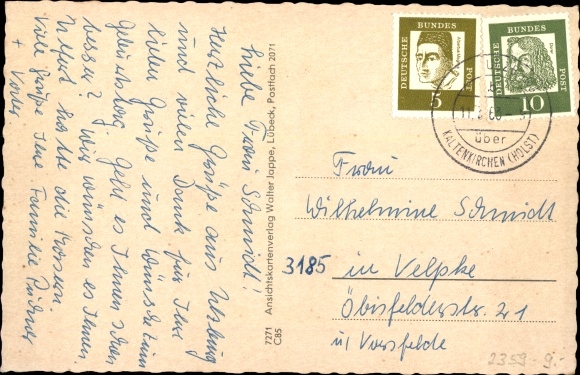 Liebe Frau Schmidt!
Herzliche Grüße aus
und vielen Dank für Ihre
lieben Grüße und Wünsche zum
Geburtstag. Geht es Ihnen schon
besser? Wir wünschen es Ihnen.
hatte die Masern.
Viele Grüße Ihre Familie
7271 Ansichtskartenverlag Walter Jappe, Lübeck, Postfach 2071
C85
DEUTSCHE BUNDESPOST
5
DEUTSCHE BUNDESPOST
10
über
KALTENKIRCHEN (HOLST)
Frau
Wilhelmine Schmidt
3185 in Velpke
Öbisfelderstr. 21
ü/ Vorsfelde
2359-9.-